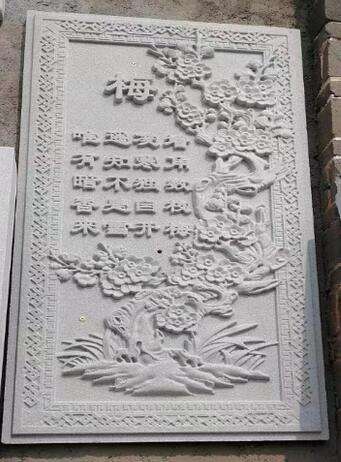 梅
墙角数枝梅
凌寒独自开
遥知不是雪
唯有暗香来